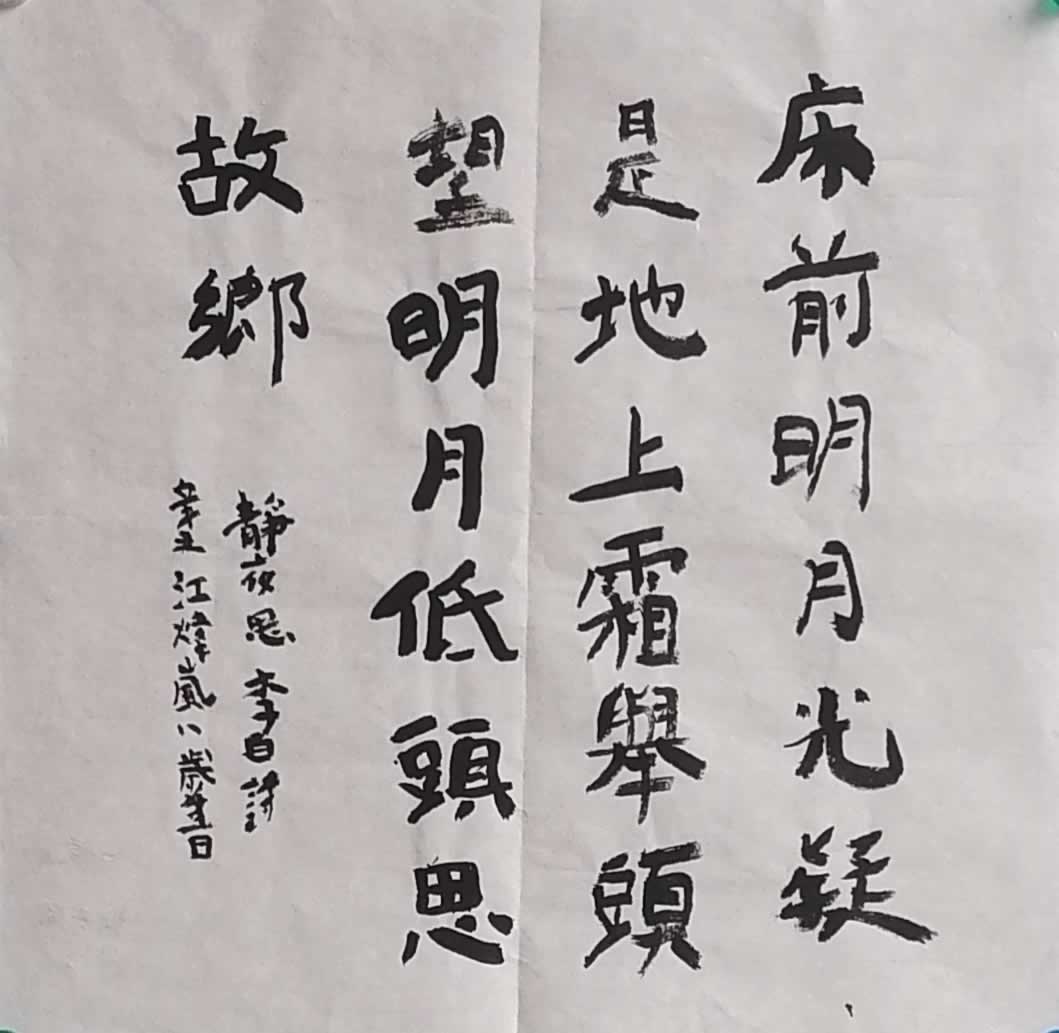 床前明月光疑
是地上霜舉頭
望明月低頭思
故鄉
靜夜思 李白詩
辛丑 江煒嵐八歲生日